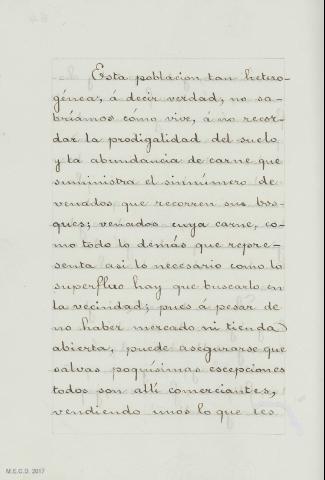 Esta poblacion tan hetero-
génea, á decir verdad, no sa-
bríamos cómo vive, á no recor-
dar la prodigalidad del suelo
y la abundancia de carne que
suministra el sinnúmero de
venados que recorren sus bos-
ques; venados cuya carne, co-
mo todo lo demás que repre-
senta asi lo necesario como lo
superfluo hay que buscarlo en
la vecindad; pues á pesar de
no haber mercado ni tienda
abierta, puede asegurarse que
salvas poquísimas escepciones
todos son allí comerciantes,
vendiendo unos lo que les
M.E.C.D. 2017